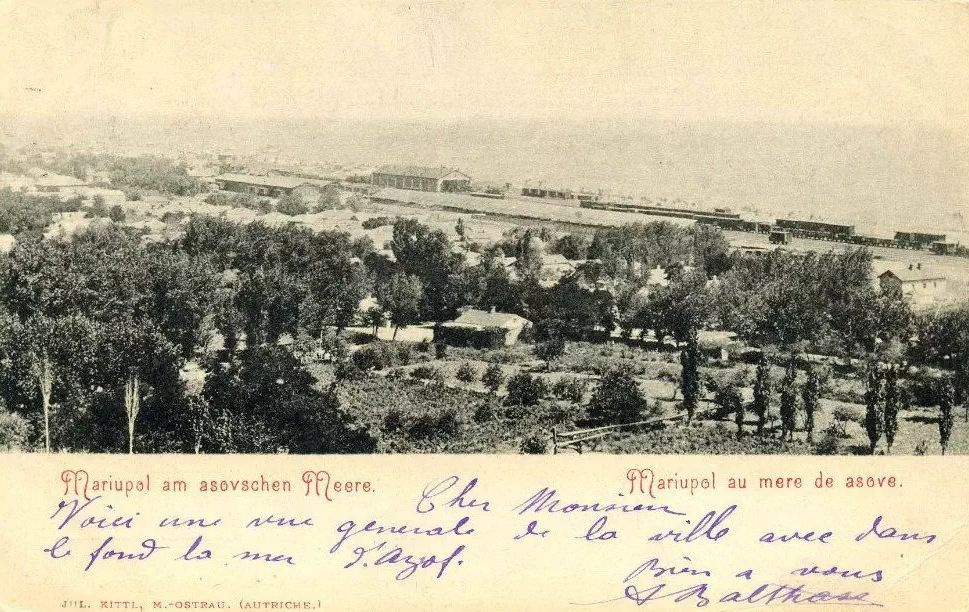 Mariupol am asovschen Meere.
Mariupol au mere de asove.
Cher Monsieur
Voici une vue generale de la ville avec dans
le fond la mer d'Azof.
Bien a vous
JUL. KITTL, M.-OSTRAU. (AUTRICHE.)